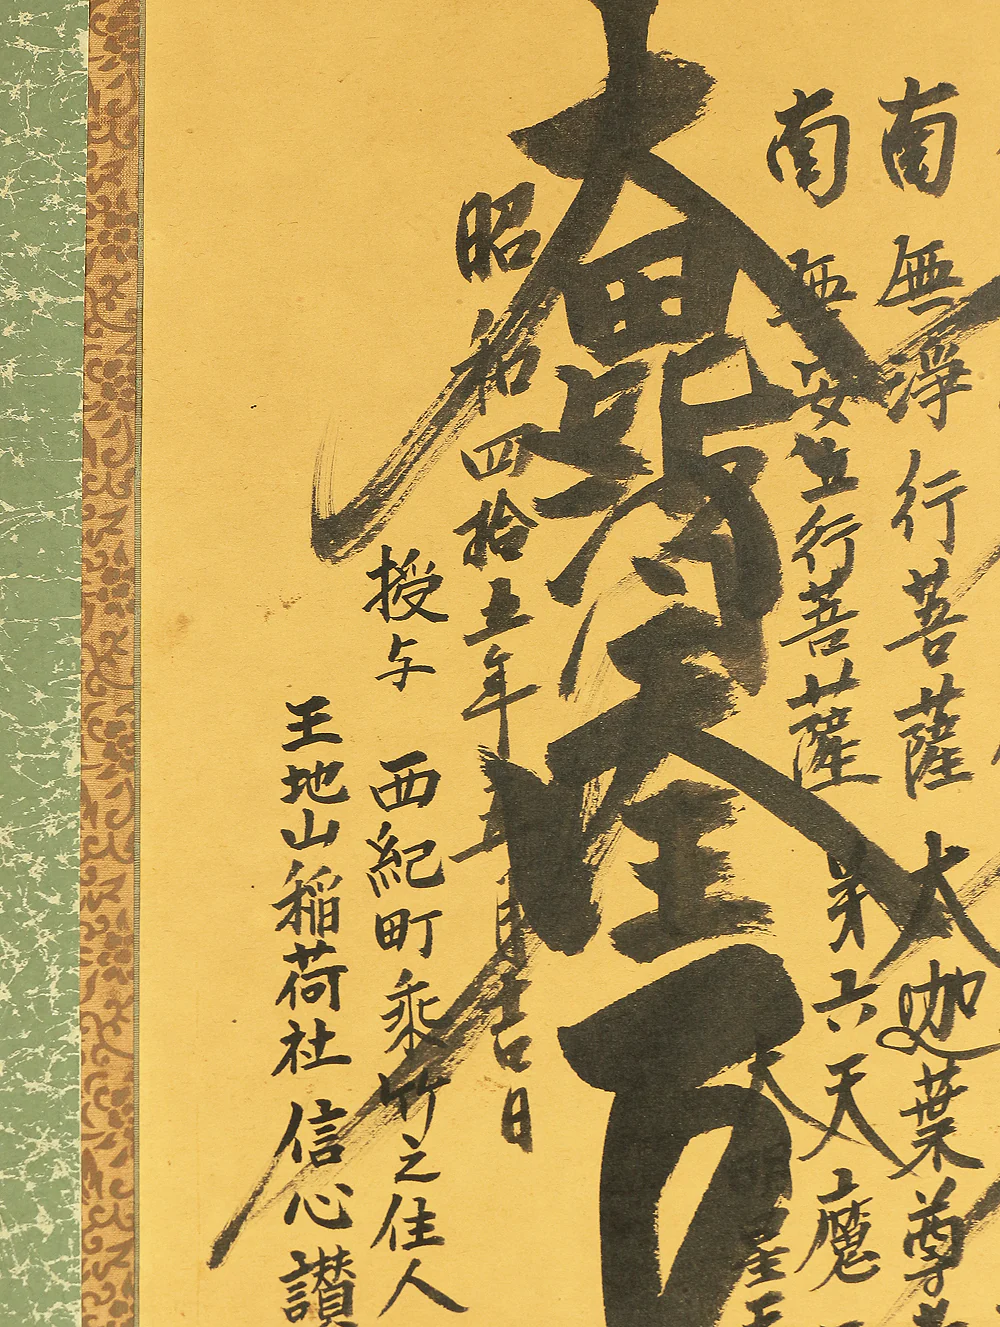 南無淨行菩薩 大迦葉尊
南無安立行菩薩 第六天魔
明星天
大毘沙門天王
昭和四拾五年五月吉日
授与 西紀町乘竹之住人
王地山稲荷社 信心讃